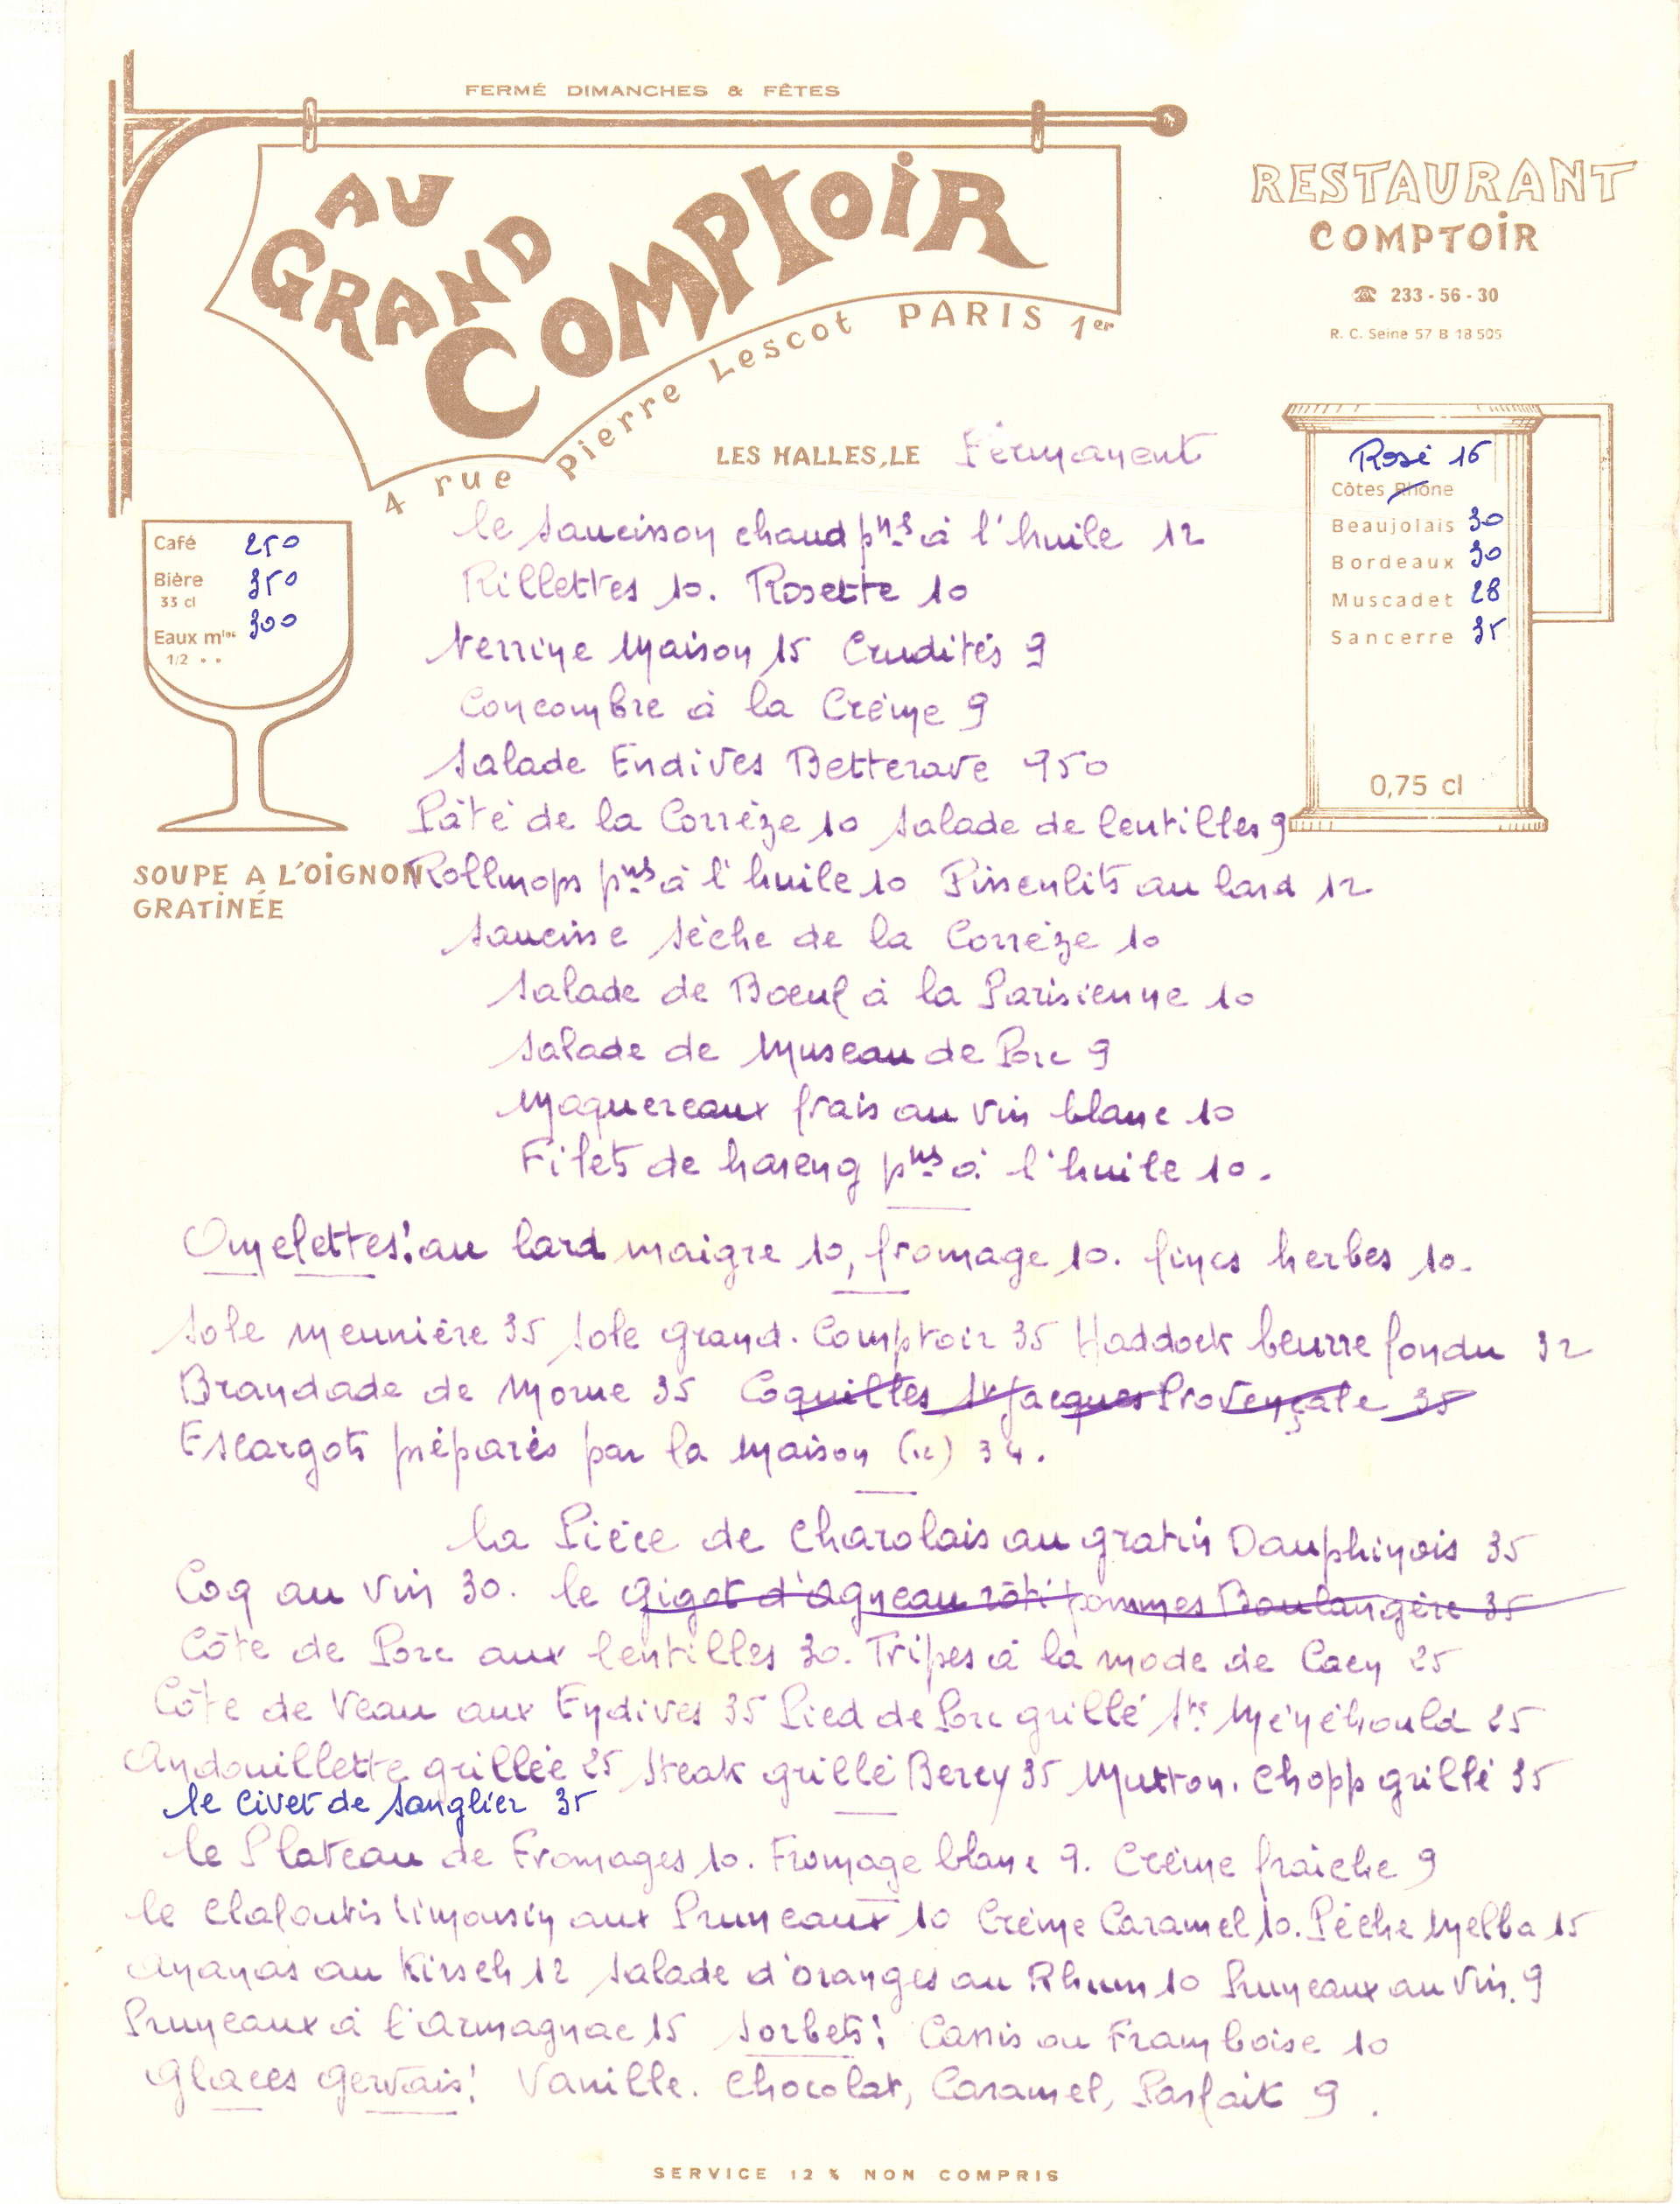 FERMÉ DIMANCHES & FÊTES
AU
GRAND
COMPTOIR
4 rue Pierre Lescot PARIS 1er
RESTAURANT
COMPTOIR
☎ 233-56-30
R. C. Seine 57 B 18 505
LES HALLES, LE Permanent
Café 250
Bière 350
33 cl
Eaux mles 300
1/2 • •
SOUPE A L'OIGNON
GRATINÉE
Rosé 16
Côtes Rhône
Beaujolais 30
Bordeaux 30
Muscadet 28
Sancerre 35
0,75 cl
le Saucisson chaud pms à l'huile 12
Rillettes 10. Rosette 10
Terrine Maison 15 Crudités 9
Concombre à la Crème 9
Salade Endives Betterave 950
Pâté de la Corrèze 10 Salade de lentilles 9
Rollmops pms à l'huile 10 Pissenlits au lard 12
Saucisse Sèche de la Corrèze 10
Salade de Boeuf à la Parisienne 10
Salade de Museau de Porc 9
Maquereaux frais au vin blanc 10
Filets de hareng pms à l'huile 10.
Omelettes: au lard maigre 10, fromage 10. fines herbes 10.
Sole meunière 35 Sole Grand. Comptoir 35 Haddock beurre fondu 32
Brandade de Morue 35 Coquilles St Jacques Provençale 35
Escargots préparés par la Maison (12) 34.
la Pièce de Charolais au gratin Dauphinois 35
Coq au vin 30. le Gigot d'Agneau rôti pommes Boulangère 35
Côte de Porc aux lentilles 30. Tripes à la mode de Caen 25
Côte de Veau aux Endives 35 Pied de Porc grillé Ste Ménéhould 25
Andouillette grillée 25 Steak grillé Bercy 35 Mutton. Chopp grillé 35
le Civet de Sanglier 35
le Plateau de Fromages 10. Fromage blanc 9. Crème fraîche 9
le Clafoutis limousin aux Pruneaux 10 Crème Caramel 10. Pêche Melba 15
Ananas au Kirsch 12 Salade d'oranges au Rhum 10 Pruneaux au Vin. 9
Pruneaux à l'Armagnac 15 Sorbets: Cassis ou Framboise 10
Glaces Gervais: Vanille. Chocolat, Caramel, Parfait 9.
SERVICE 12 % NON COMPRIS